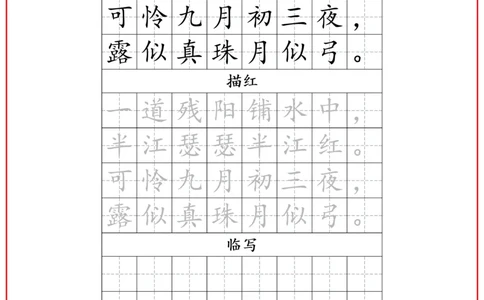 可怜九月初三夜，
露似真珠月似弓。
描红
一道残阳铺水中，
半江瑟瑟半江红。
可怜九月初三夜，
露似真珠月似弓。
临写